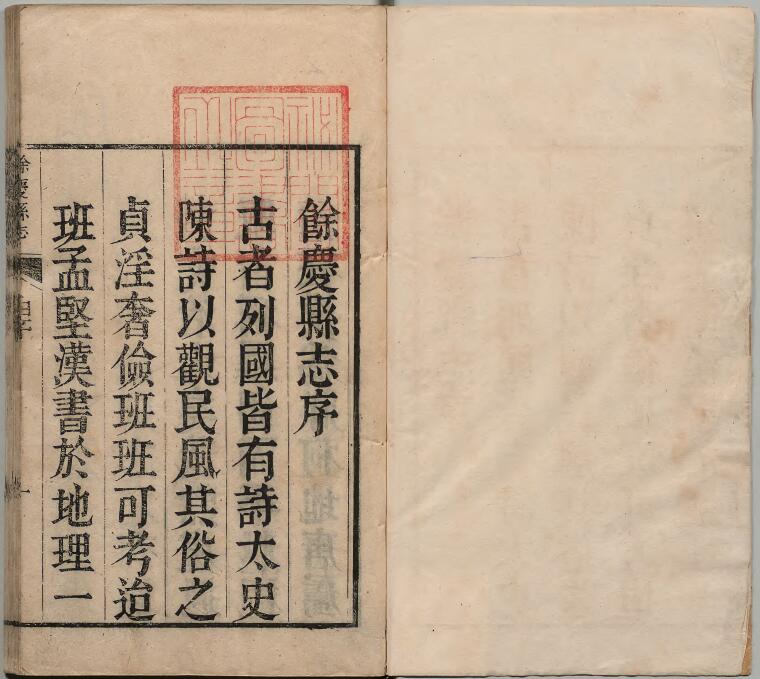 餘慶縣志序
古者列國皆有詩太史
陳詩以觀民風其俗之
貞淫奢儉班班可考迨
班孟堅漢書於地理一
餘慶縣志
自序
一